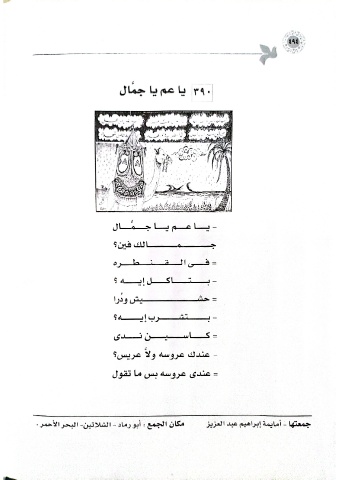 ٤٩٤
٣٩٠ يا عم يا جمَّال
- يا عم يا جمَّال
جمالك فين؟
= فى القنطره
- بتاكل إيه ؟
= حشيش ودُرا
- بتشرب إيه؟
= كاسين ندى
- عندك عروسه ولاَّ عريس؟
= عندى عروسه بس ما تقول
جمعتها - أمايمة إبراهيم عبد العزيز مكان الجمع : أبو رماد - الشلاتين- البحر الأحمر .